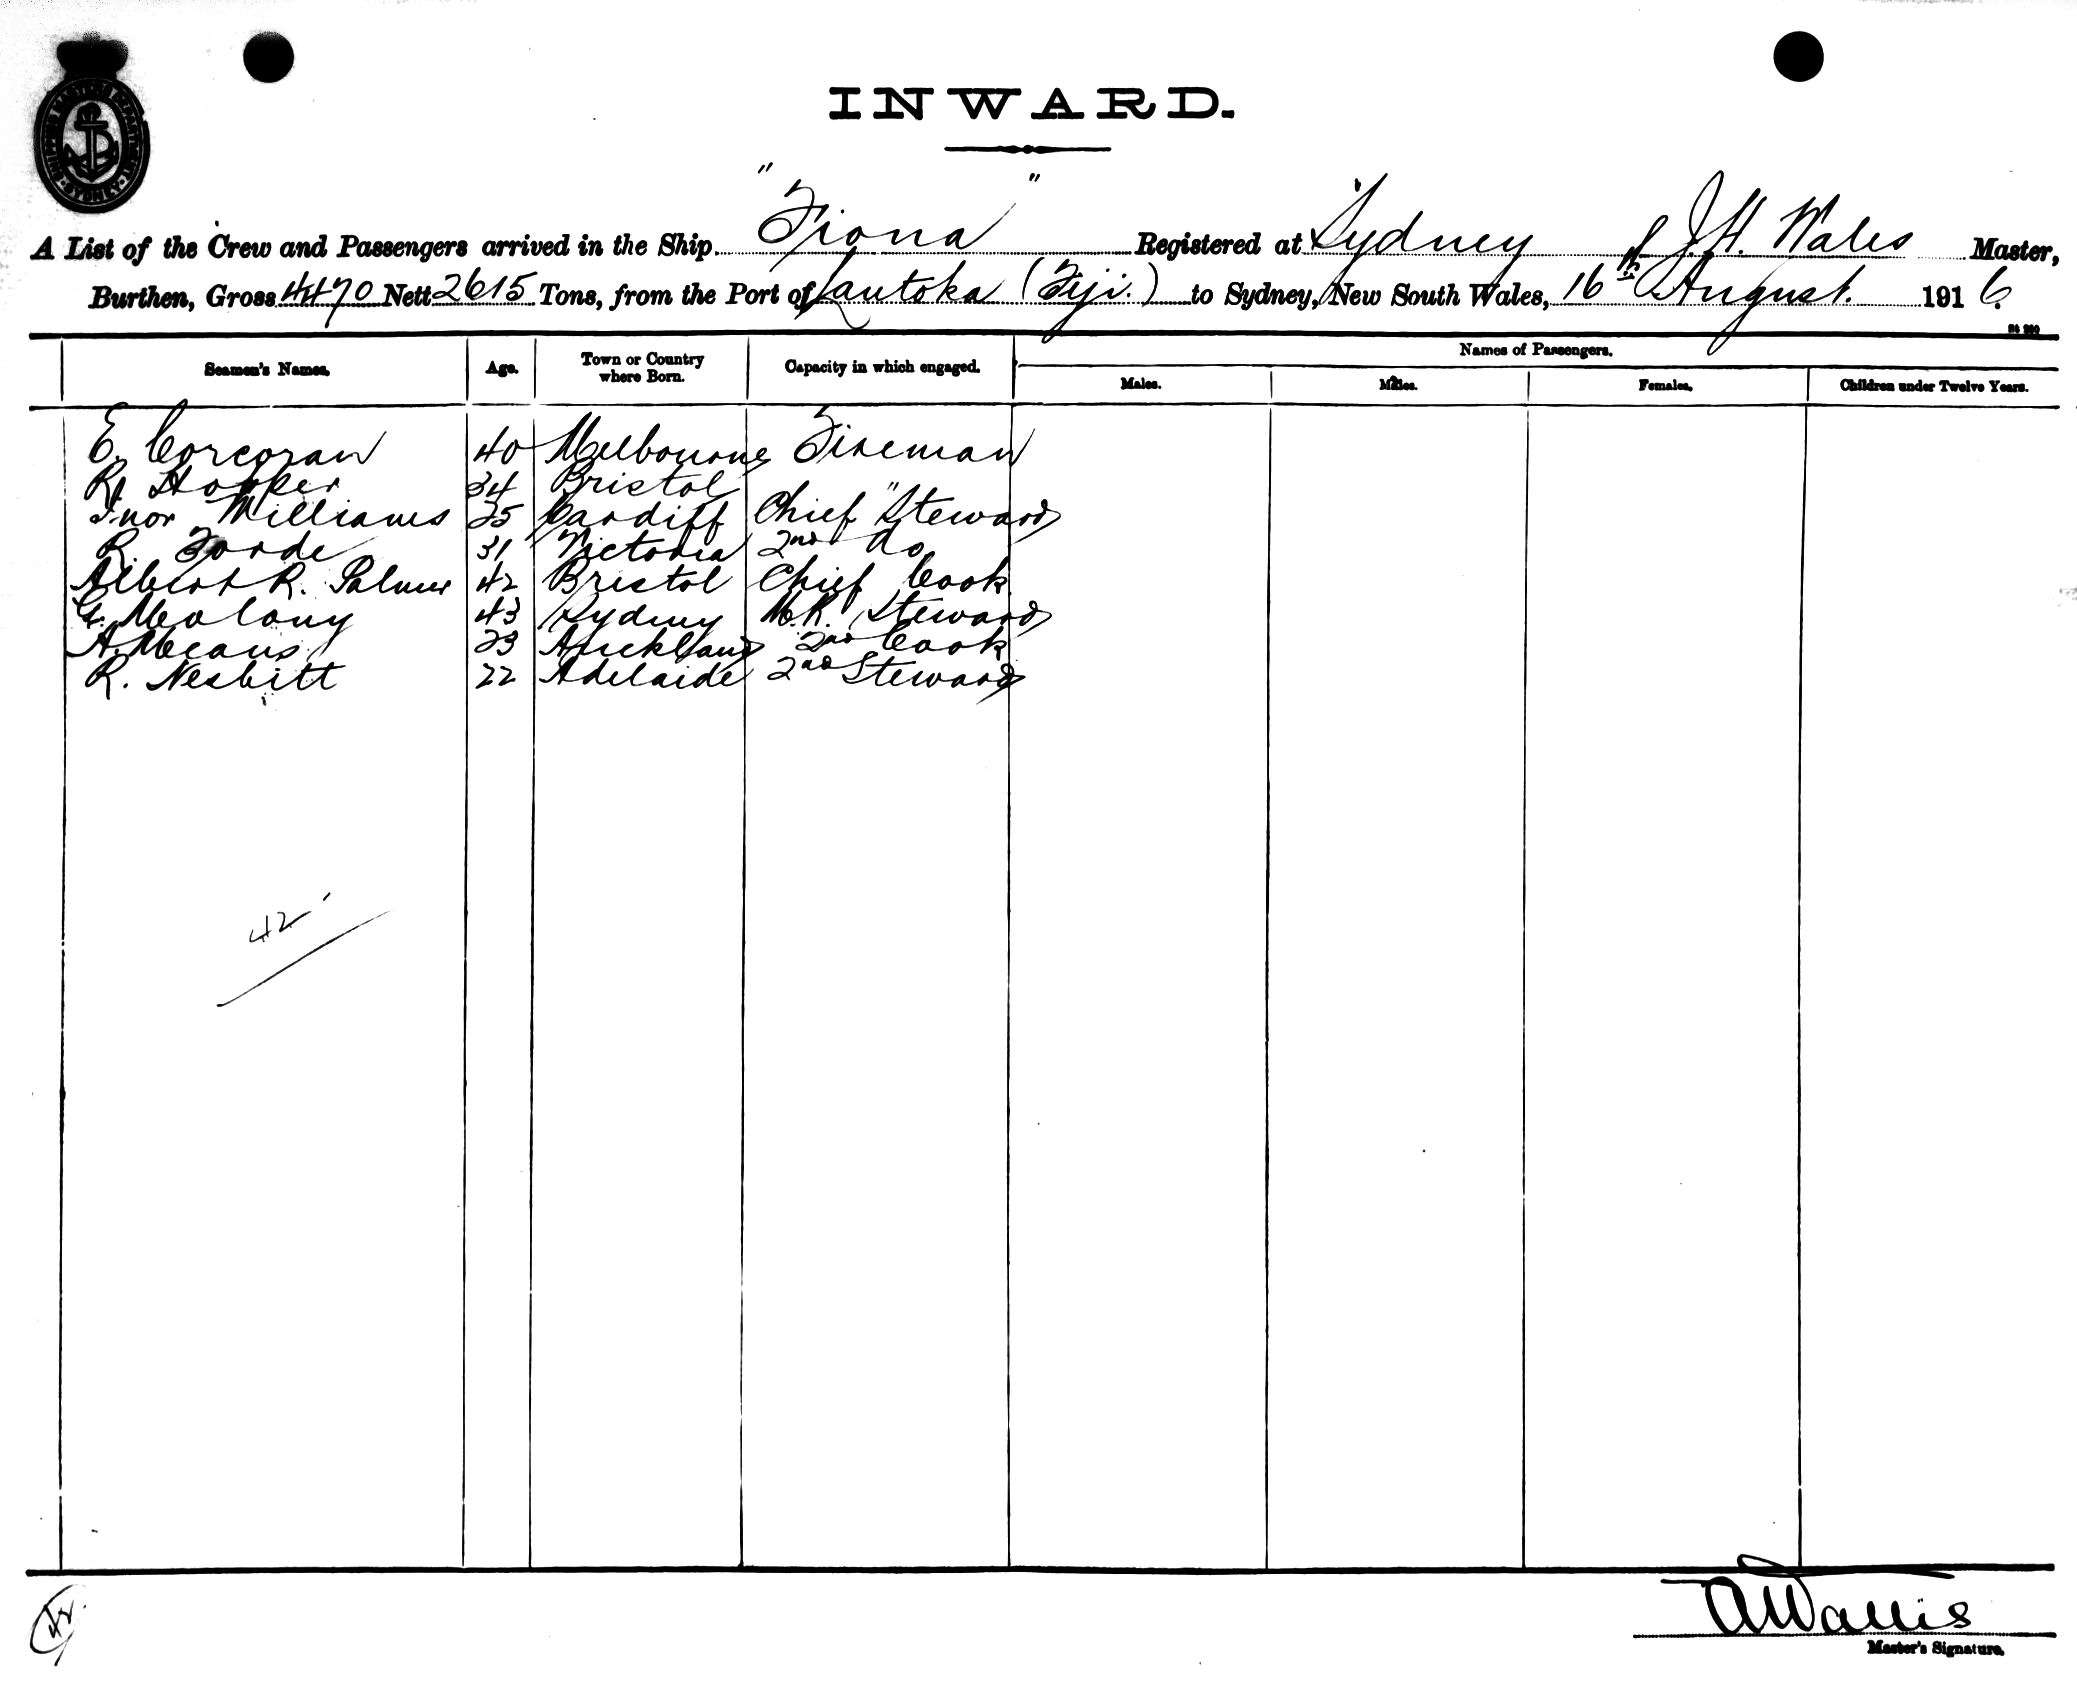 SHIPPING MASTERS DEPARTMENT
SYDNEY
INWARD.
A List of the Crew and Passengers arrived in the Ship "Fiona" Registered at Sydney, J.H. Wales Master,
Burthen, Gross 4470 Nett 2615 Tons, from the Port of Lautoka (Fiji.) to Sydney, New South Wales, 16th August. 1916.
Seamen's Names. Age. Town or Country where Born. Capacity in which engaged. Names of Passengers.
Males. Males. Females. Children under Twelve Years.
E. Corcoran 40 Melbourne Fireman
R. Hopper 34 Bristol "
Ivor Williams 25 Cardiff Chief Steward
R. Forde 31 Victoria 2nd do
Albert R. Palmer 42 Bristol Chief Cook
G. Molony 43 Sydney M.R. Steward
A. Means 23 Auckland 2nd Cook
R. Nesbitt 22 Adelaide 2nd Steward
42
42.
A Wallis
Master's Signature.